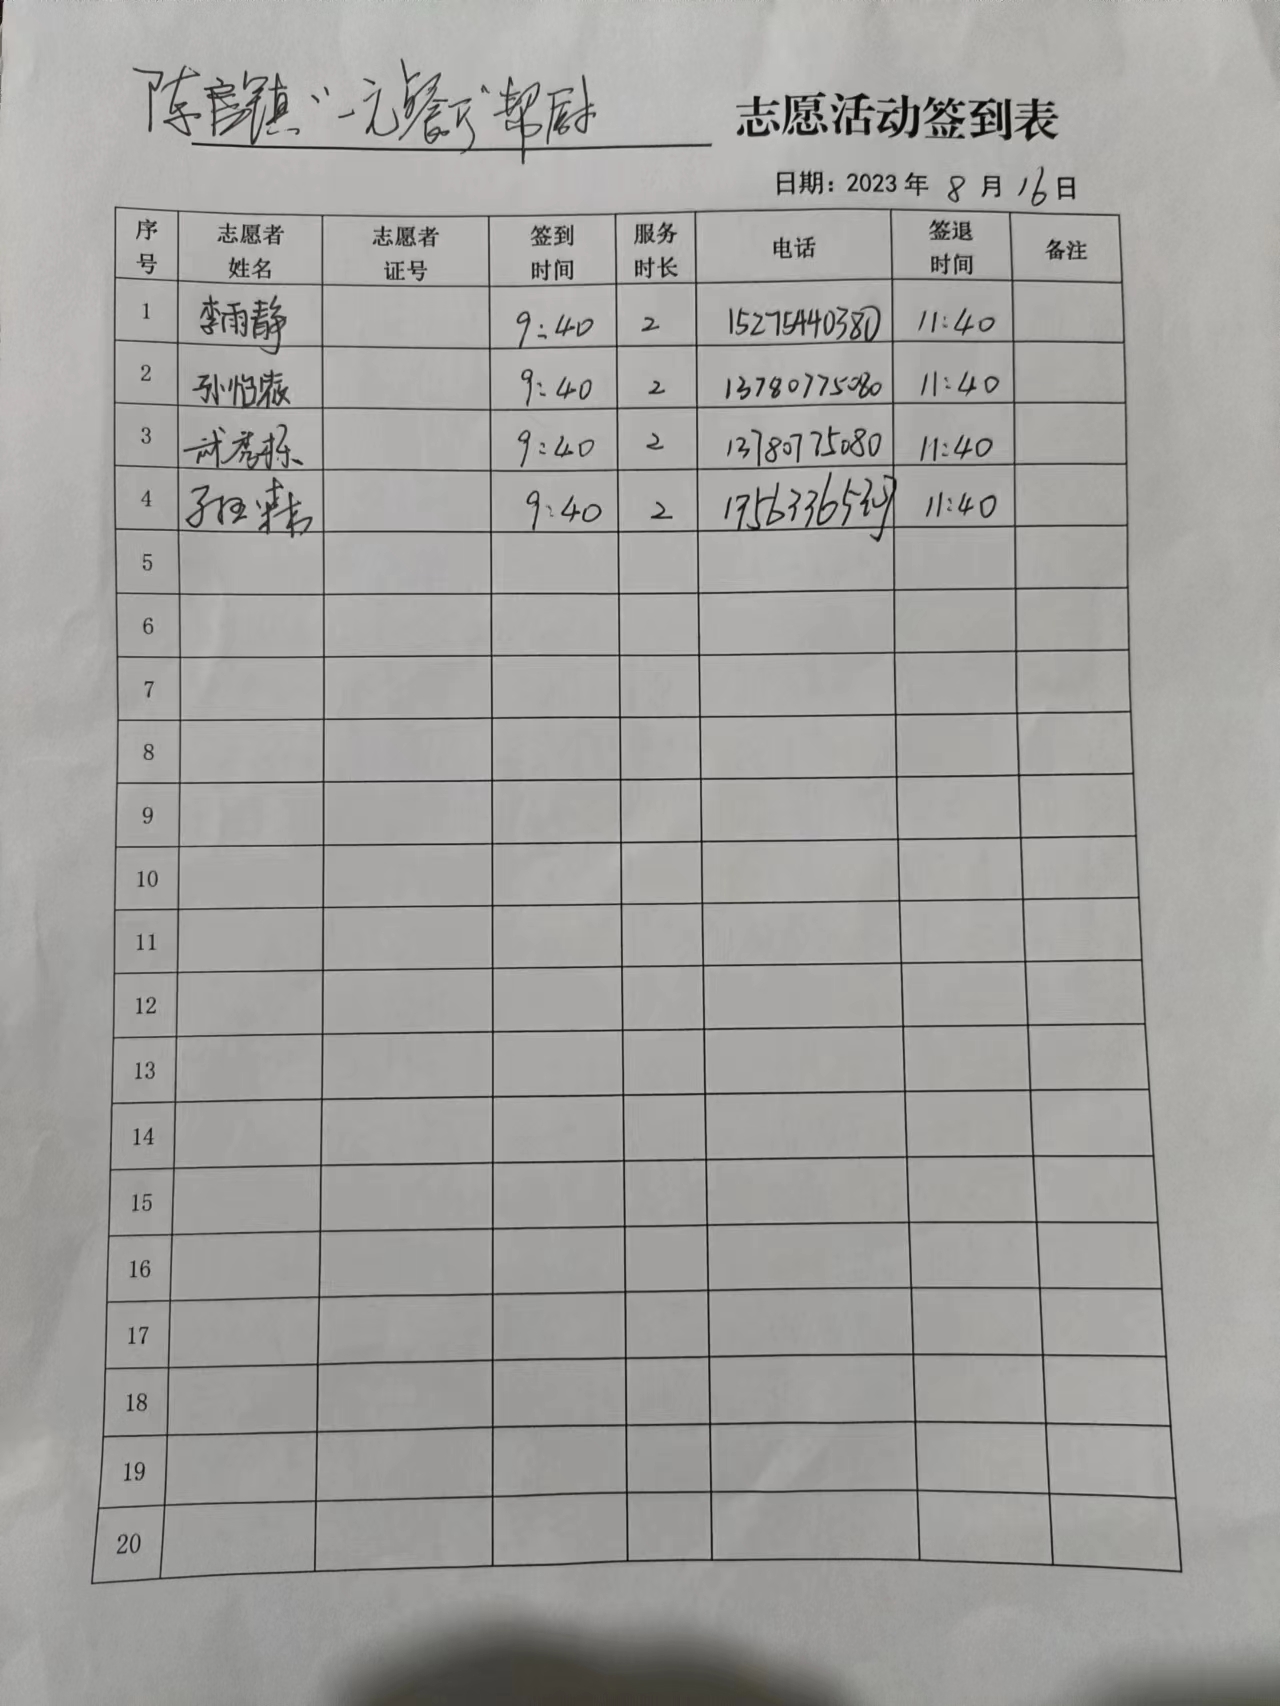 陈官镇“一元餐厅”帮厨 志愿活动签到表
日期：2023年 8 月 16日
序号 志愿者姓名 志愿者证号 签到时间 服务时长 电话 签退时间 备注
1 李雨静 9:40 2 15275440380 11:40
2 孙怡宸 9:40 2 13780775080 11:40
3 9:40 2 13780775080 11:40
4 9:40 2 11:40
5
6
7
8
9
10
11
12
13
14
15
16
17
18
19
20